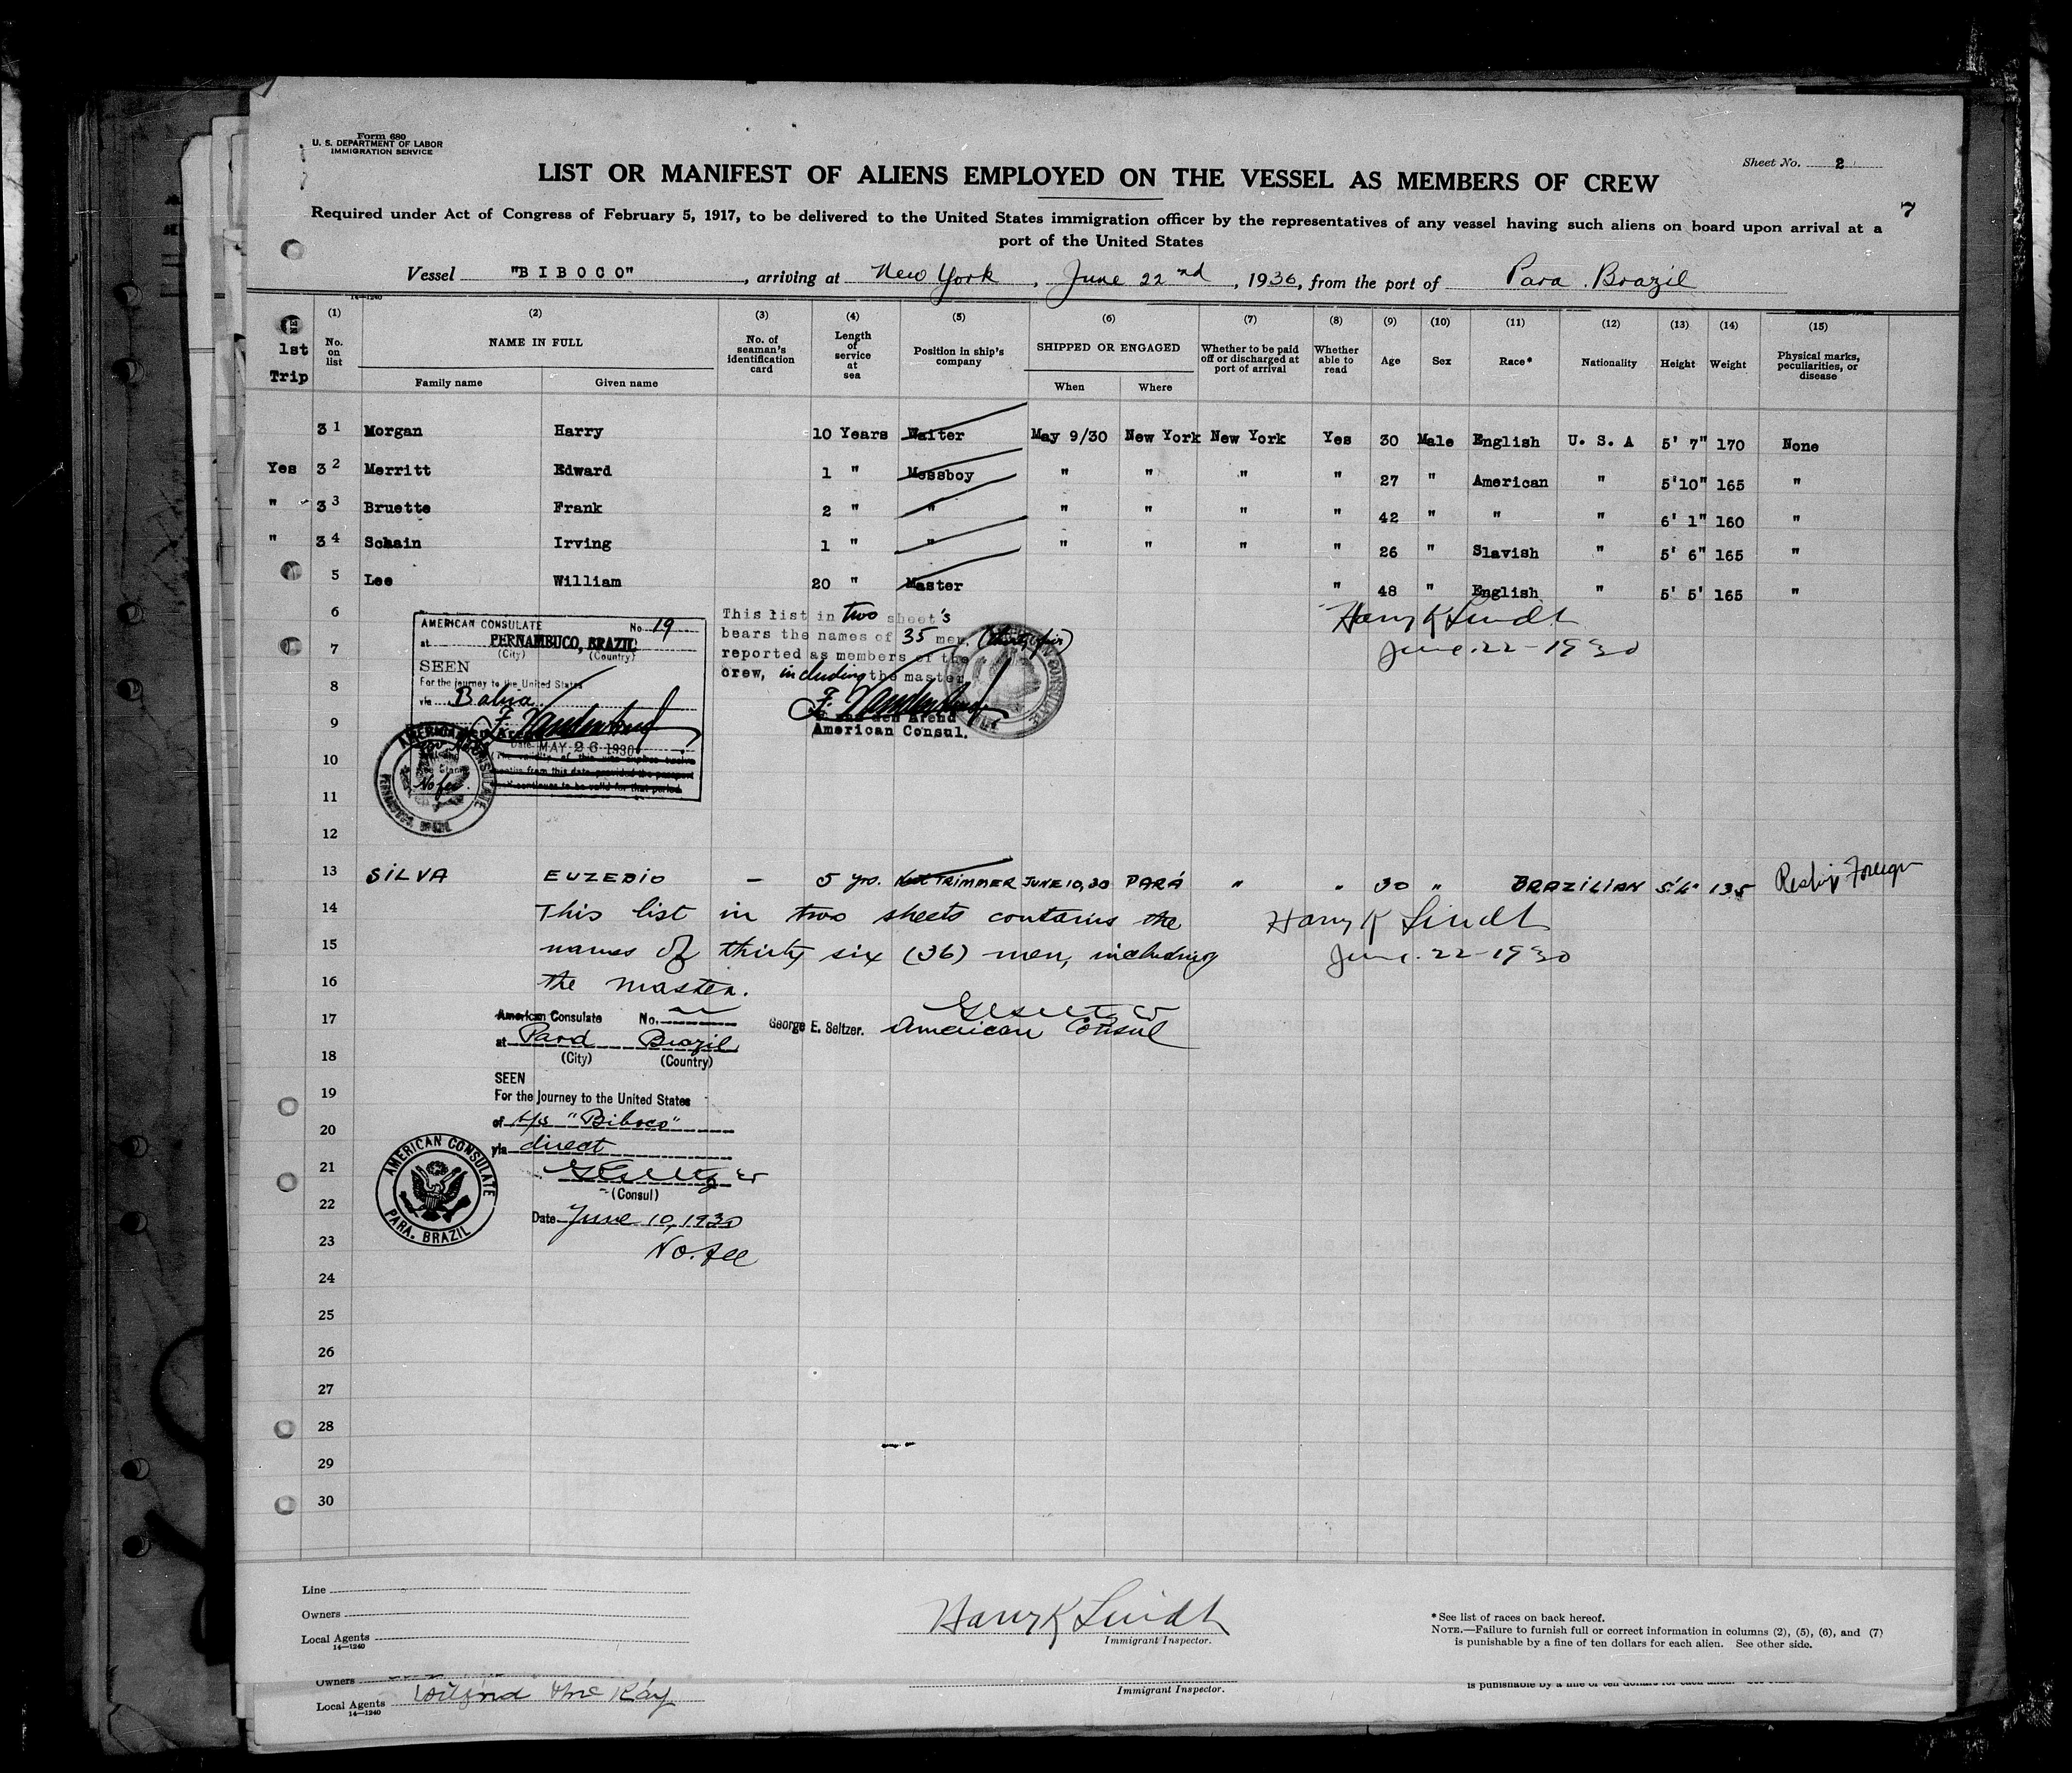 Form 680
U. S. DEPARTMENT OF LABOR
IMMIGRATION SERVICE
Sheet No. 2
LIST OR MANIFEST OF ALIENS EMPLOYED ON THE VESSEL AS MEMBERS OF CREW
7
Required under Act of Congress of February 5, 1917, to be delivered to the United States immigration officer by the representatives of any vessel having such aliens on board upon arrival at a
port of the United States
Vessel "BIBOCO", arriving at New York, June 22nd, 1930, from the port of Para. Brazil
14—1240
1st Trip
(1) No. on list
(2) NAME IN FULL Family name Given name
(3) No. of seaman's identification card
(4) Length of service at sea
(5) Position in ship's company
(6) SHIPPED OR ENGAGED When Where
(7) Whether to be paid off or discharged at port of arrival
(8) Whether able to read
(9) Age
(10) Sex
(11) Race*
(12) Nationality
(13) Height
(14) Weight
(15) Physical marks, peculiarities, or disease
31 Morgan Harry 10 Years Waiter May 9/30 New York New York Yes 30 Male English U. S. A 5' 7" 170 None
Yes 32 Merritt Edward 1 " Messboy " " " " 27 " American " 5'10" 165 "
" 33 Bruette Frank 2 " " " " " " 42 " " " 6' 1" 160 "
" 34 Schain Irving 1 " " " " " " 26 " Slavish " 5' 6" 165 "
5 Lee William 20 " Master " 48 " English " 5' 5' 165 "
6
7
8
9
10
11
12
AMERICAN CONSULATE No. 19
at PERNAMBUCO, BRAZIL
(City) (Country)
SEEN
For the journey to the United States
via Bahia
Date MAY 26 1930
No fee.
AMERICAN CONSULATE
PERNAMBUCO, BRAZIL
This list in two sheet's
bears the names of 35 men,
reported as members of the
crew, including the master
F. van den Arend
American Consul.
Harry K Lindt
June. 22-1930
13 SILVA EUZEBIO — 5 yrs. TRIMMER JUNE 10, 30 PARÁ " " 30 " BRAZILIAN 135 Foreign
14 This list in two sheets contains the
15 names of thirty six (36) men, including
16 the master.
Harry K Lindt
June. 22-1930
17
American Consulate No.
at Pará Brazil
(City) (Country)
George E. Seltzer. American Consul
18
SEEN
19
For the Journey to the United States
of s/s "Biboco"
20
via direct
21
(Consul)
22
Date June 10, 1930
23
No. fee
AMERICAN CONSULATE
PARA, BRAZIL
24
25
26
27
28
29
30
Line
Owners
Local Agents
14—1240
Harry K Lindt
Immigrant Inspector.
* See list of races on back hereof.
NOTE.—Failure to furnish full or correct information in columns (2), (5), (6), and (7)
is punishable by a fine of ten dollars for each alien. See other side.
Owners
Local Agents
14—1240
Immigrant Inspector.
is punishable by a fine of ten dollars for each alien.